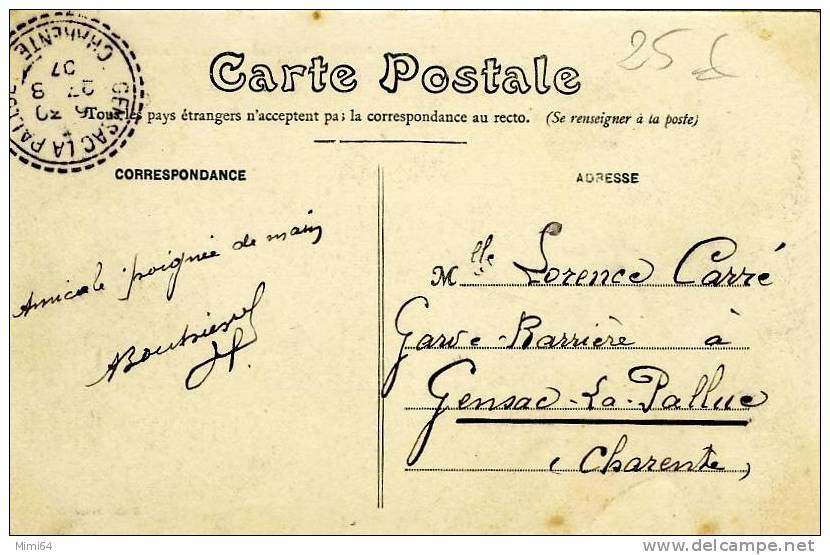 25 £
Carte Postale
GENSAC LA PALLUE
CHARENTE
8 30
27 6
07
Tous les pays étrangers n'acceptent pas la correspondance au recto. (Se renseigner à la poste)
CORRESPONDANCE
Amicale poignée de main
ADRESSE
Mlle Lorence Carré
Garde-Barrière à
Gensac-La-Pallue
(Charente)
Mimi64
delcampe.net